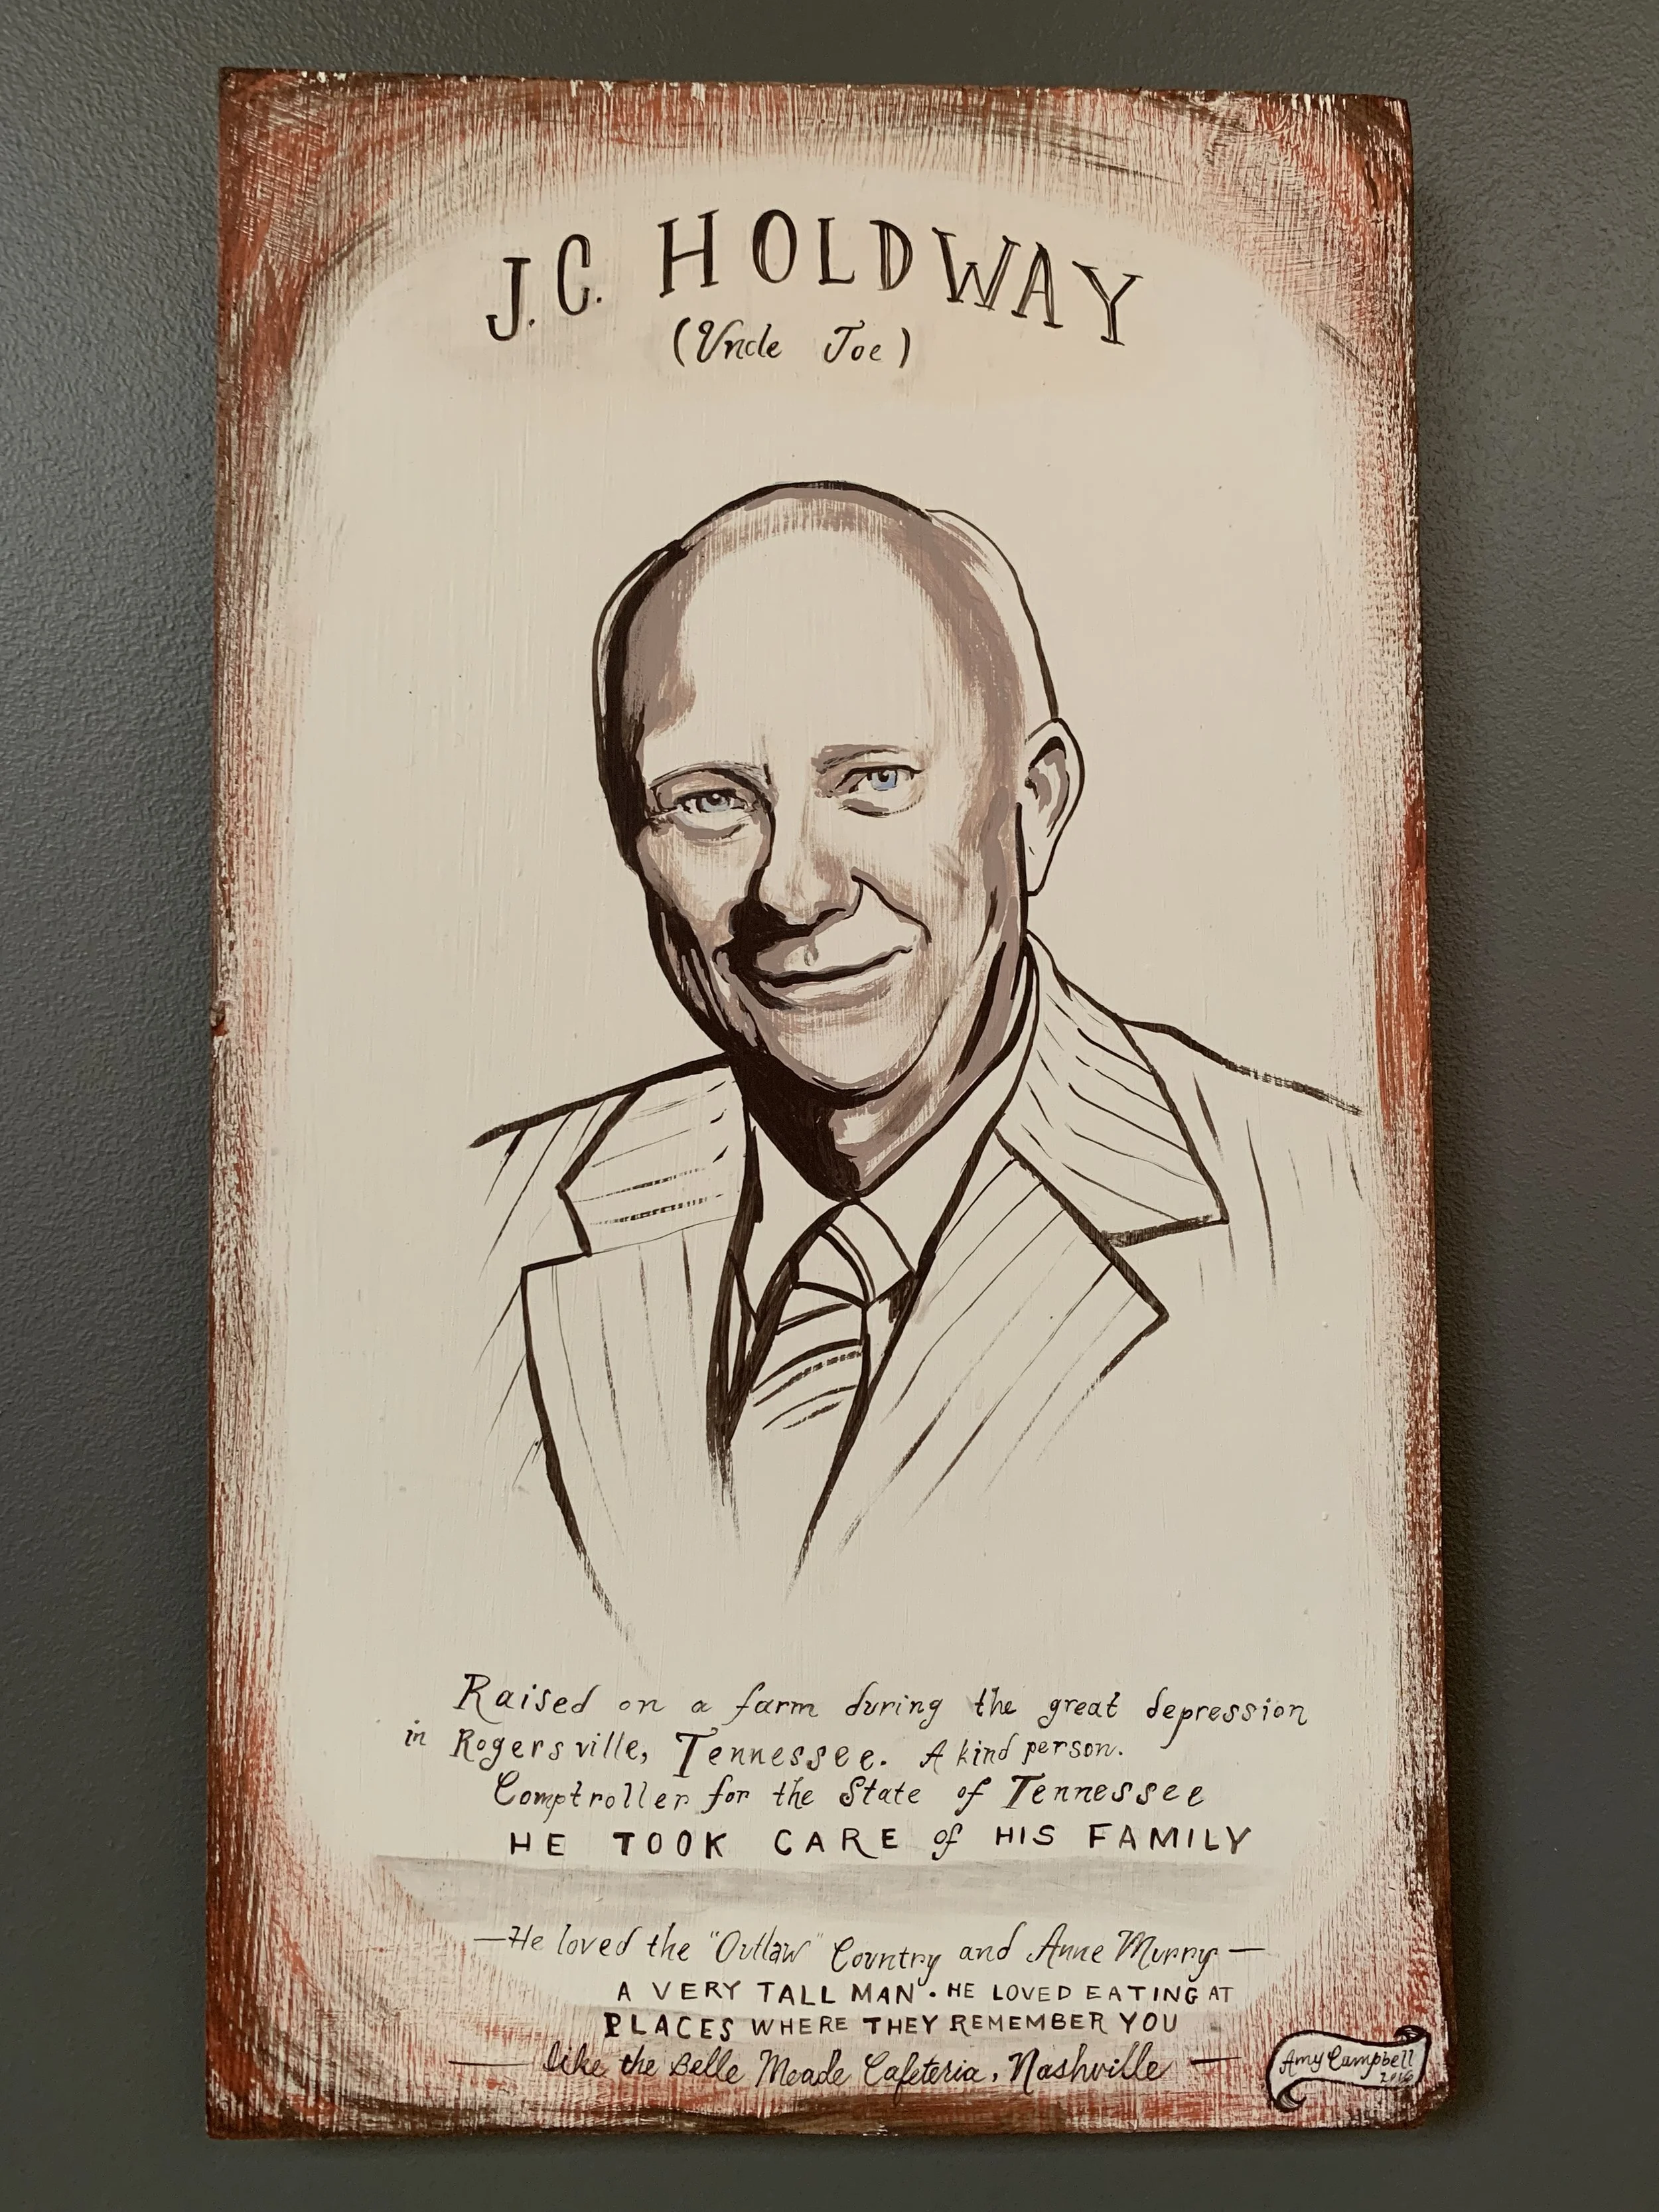 J.C. HOLDWAY
(Uncle Joe)
Raised on a farm during the great depression
in Rogersville, Tennessee. A kind person.
Comptroller for the State of Tennessee
HE TOOK CARE of HIS FAMILY
—He loved the "Outlaw" Country and Anne Murry—
A VERY TALL MAN. HE LOVED EATING AT
PLACES WHERE THEY REMEMBER YOU
— like the Belle Meade Cafeteria, Nashville —
Amy Campbell
2016